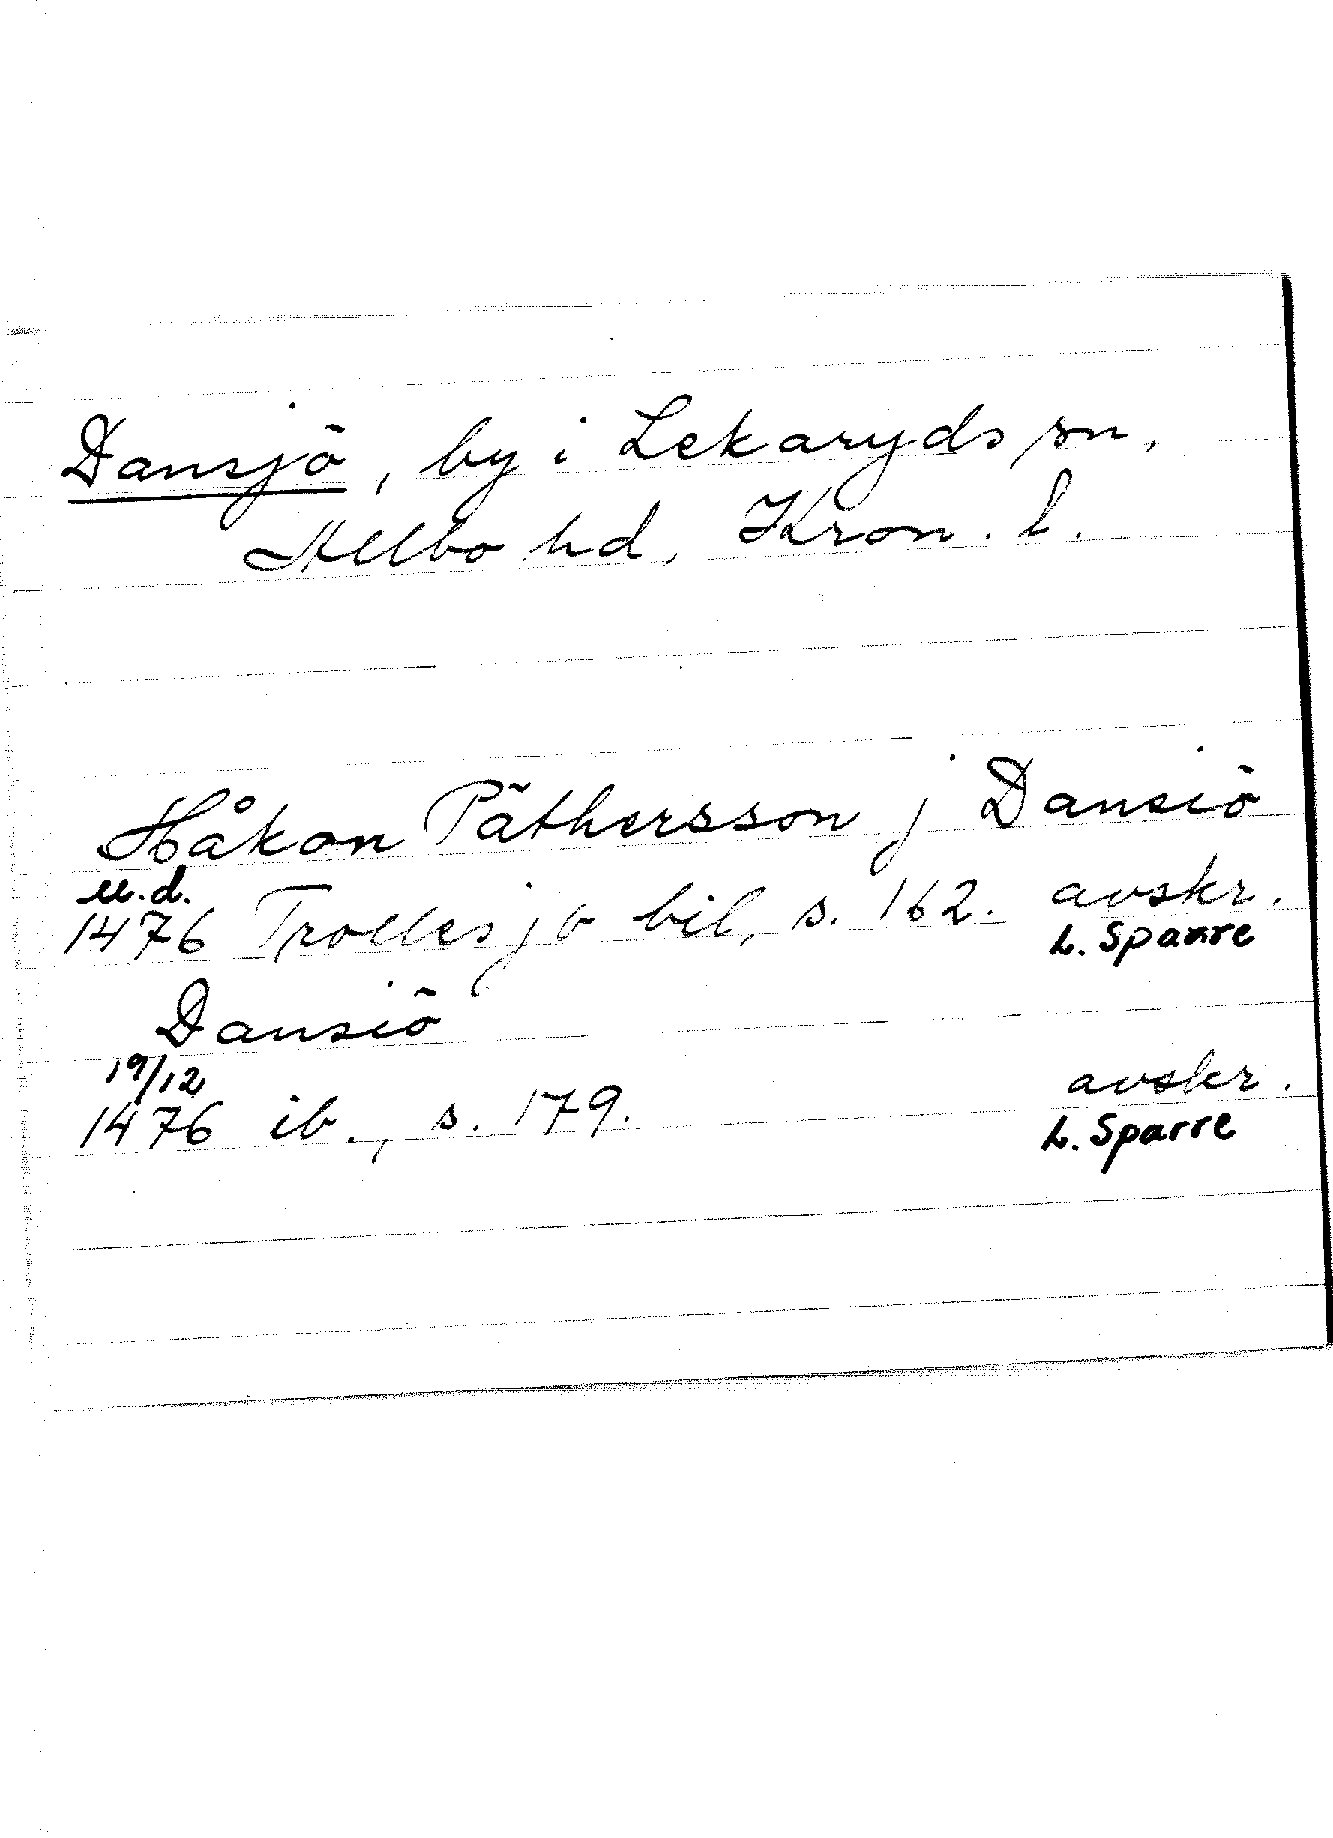 Dansjö, by i Lekaryds sn,
Allbo hd, Kron. l.
Håkan Päthersson j Dansiö
u.d.
1476 Trolles jb bil, s. 162. avskr.
L. Sparre
Dansiö
19/12
1476 ib., s. 179. avskr.
L. Sparre